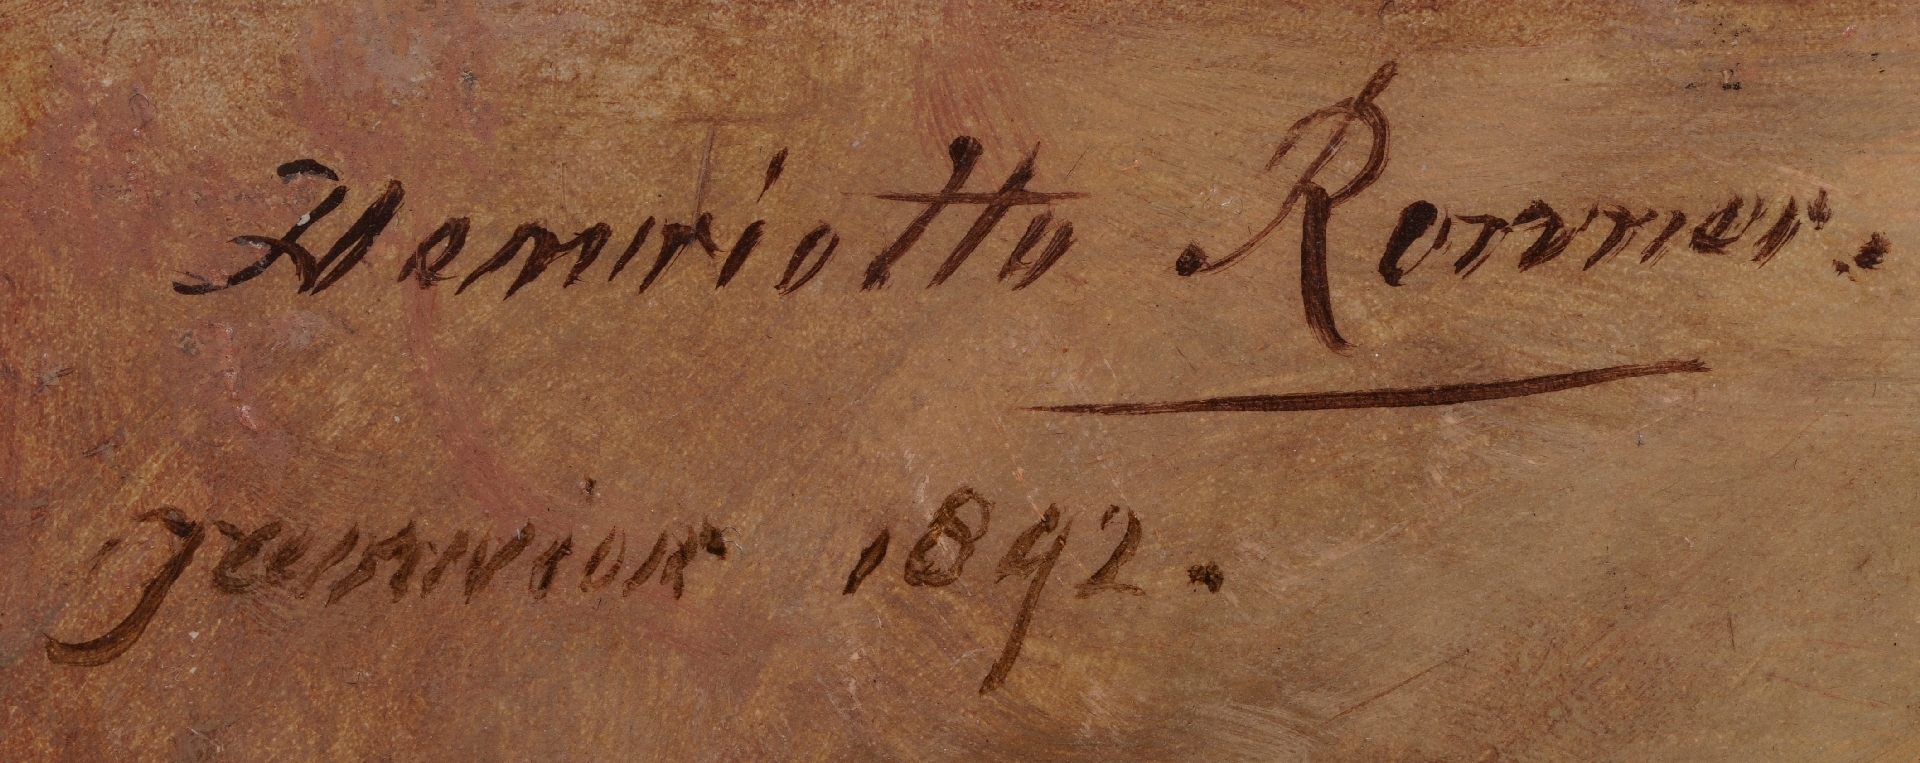 Henriette Ronner.
janvier 1892.